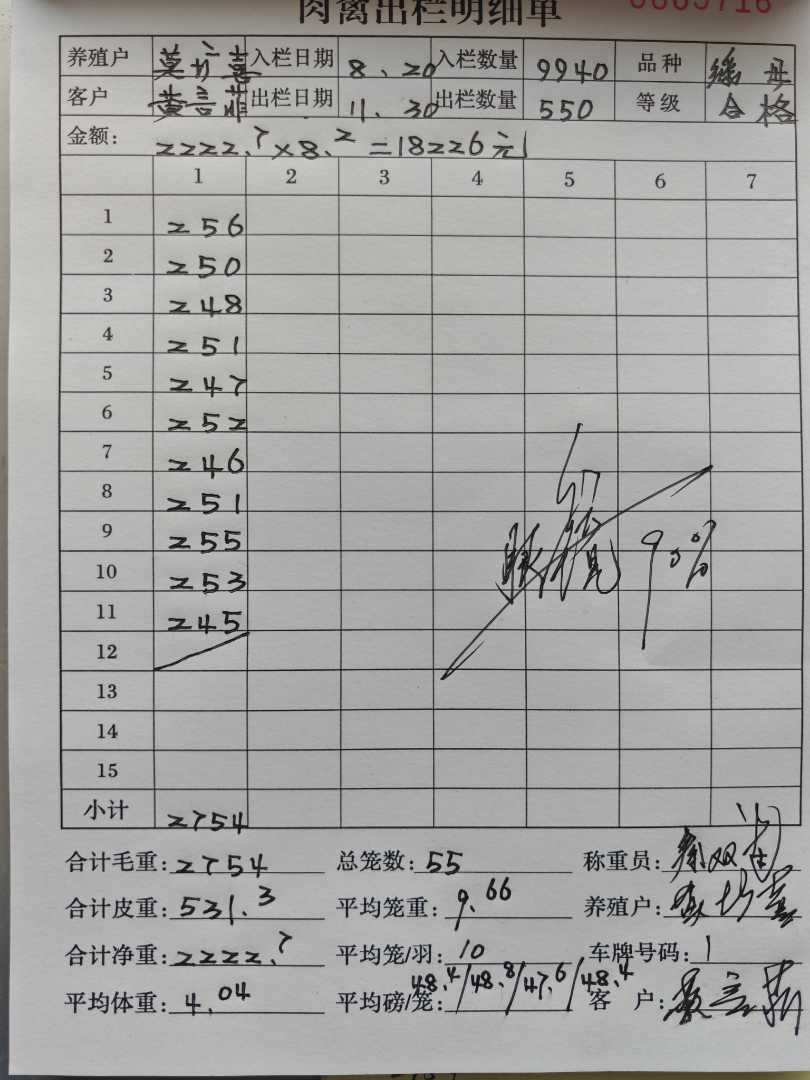 肉禽出栏明细单
养殖户 莫 喜 入栏日期 8、20 入栏数量 9940 品种 母
客户 黄言菲 出栏日期 11、30 出栏数量 550 等级 合格
金额: 2222.7×8.2=18226元
1 2 3 4 5 6 7
1 256
2 250
3 248
4 251
5 247
6 252
7 246
8 251
9 255
10 253
11 245
90%
12
13
14
15
小计 2754
合计毛重: 2754 总笼数: 55 称重员:
合计皮重: 531.3 平均笼重: 9.66 养殖户:
合计净重: 2222.7 平均笼/羽: 10 车牌号码:
平均体重: 4.04 平均磅/笼: 48.4/48.8/47.6/48.4 客户: